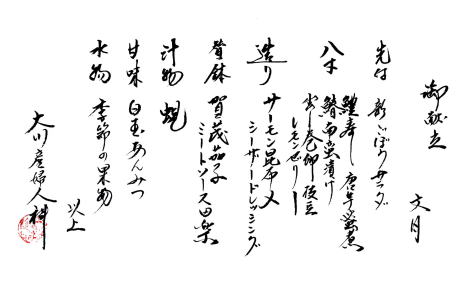 御献立
文月
先付 新ごぼうサラダ
八寸 鯉寿し 唐芋蜜煮
鯖南蛮漬け
出し巻 卵 枝豆
レモンゼリー
造り サーモン昆布〆
シーザードレッシング
賀茂茄子
ミートソース田楽
汁物 蜆
甘味 白玉あんみつ
水物 季節の果物
以上
大川産婦人科